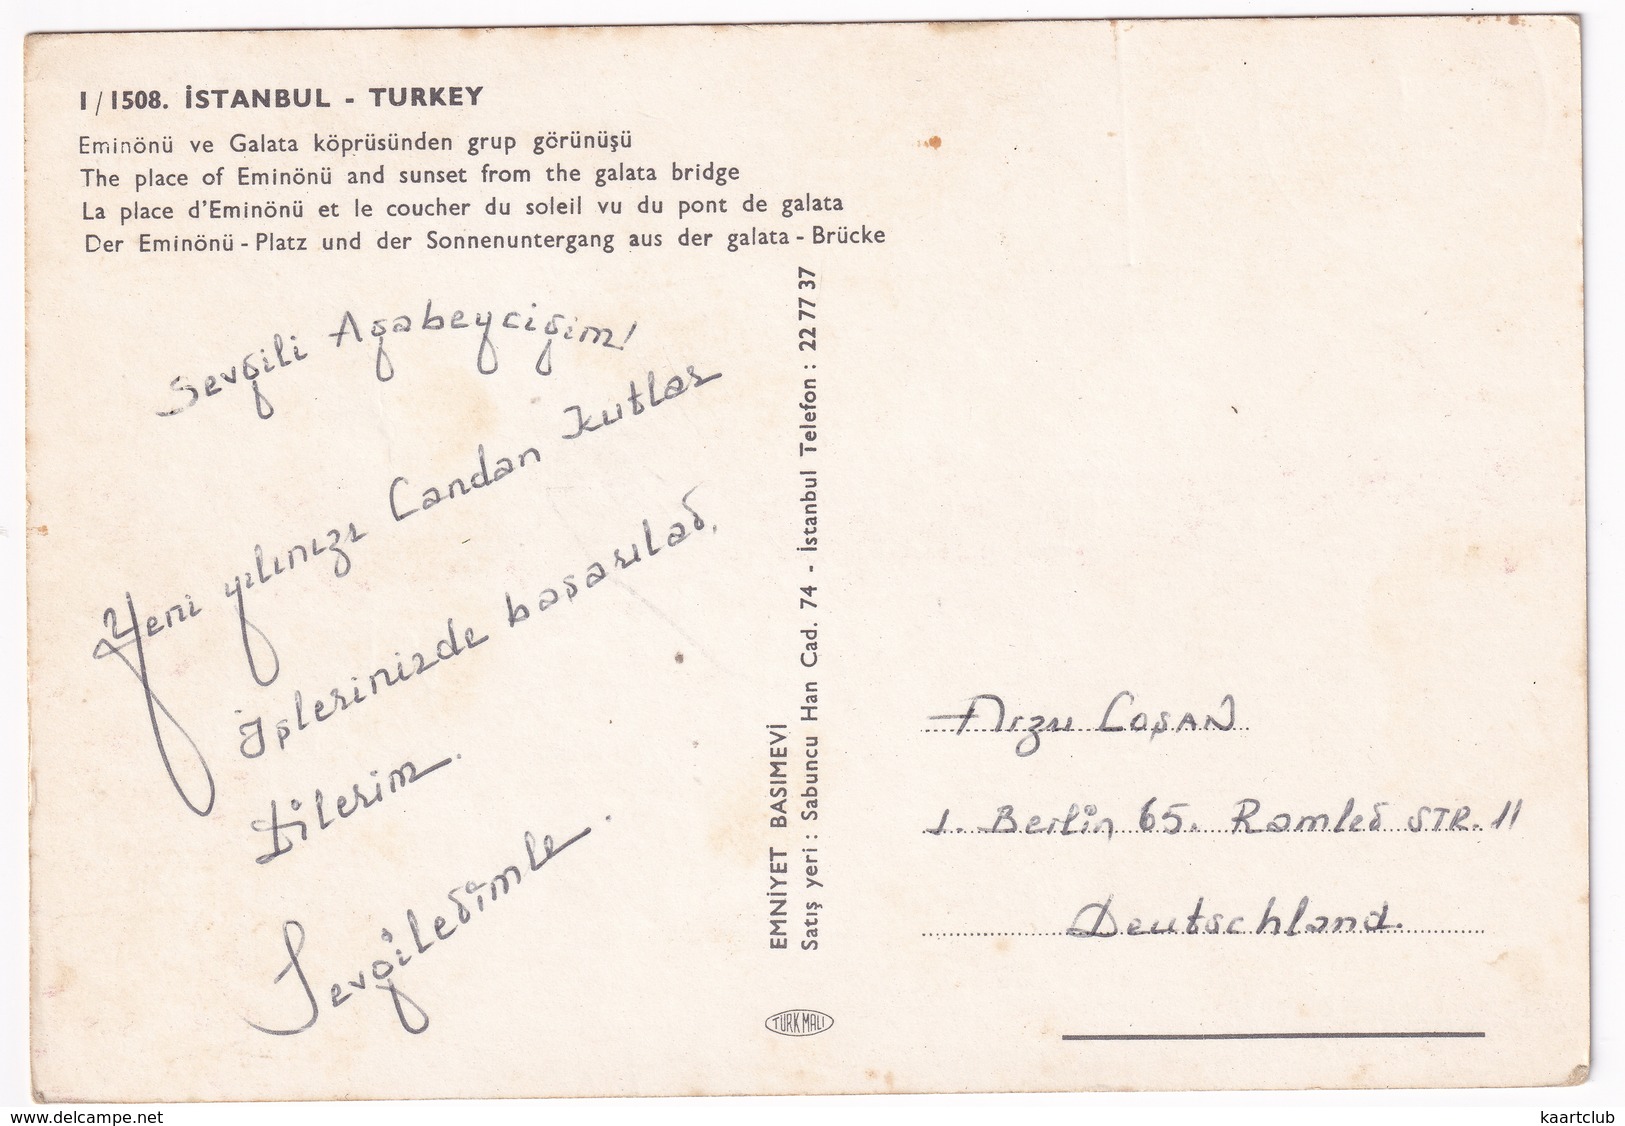 I/1508. İSTANBUL - TURKEY
Eminönü ve Galata köprüsünden grup görünüşü
The place of Eminönü and sunset from the galata bridge
La place d'Eminönü et le coucher du soleil vu du pont de galata
Der Eminönü - Platz und der Sonnenuntergang aus der galata - Brücke
Sevgili Ağabeyciğim!
Yeni yılınızı Candan Kutlar
İşlerinizde başarılar,
Dilerim.
Sevgilerimle.
EMNİYET BASIMEVİ
Satış yeri : Sabuncu Han Cad. 74 - İstanbul Telefon : 22 77 37
TÜRK MALI
Arzu COŞAN
1. Berlin 65. Ramler STR. 11
Deutschland.
www.delcampe.net
kaartclub